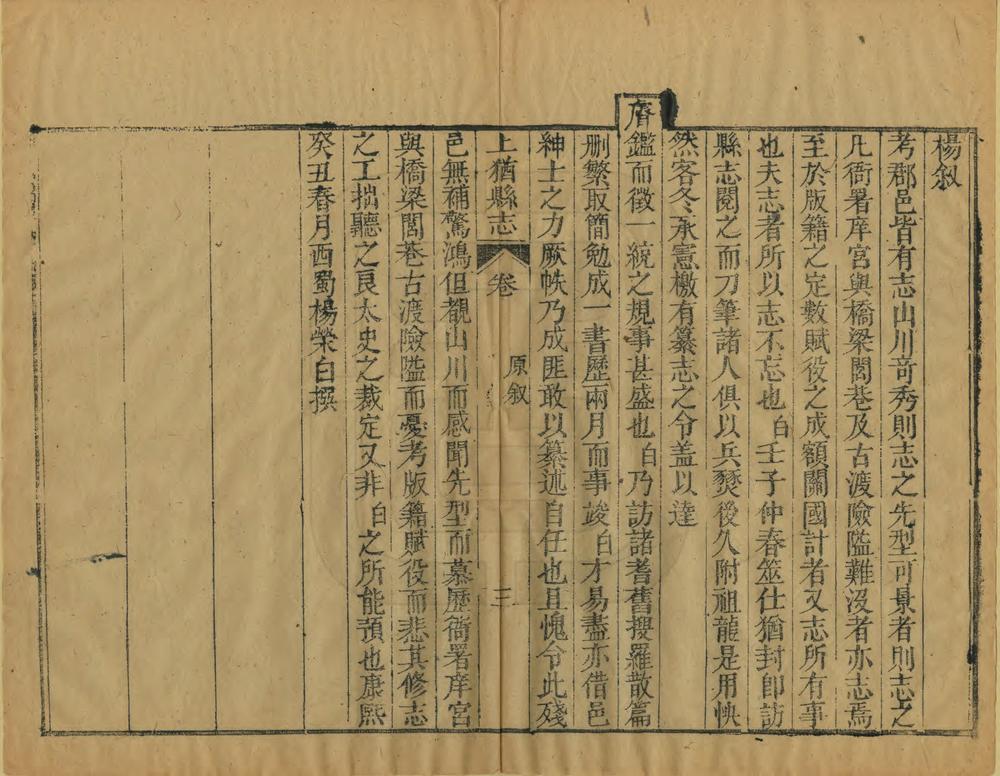 楊叙
考郡邑皆有志山川竒秀則志之先型可景者則志之
凡衙署庠宮與橋梁閭巷及古渡險隘難没者亦志焉
至於版籍之定數賦役之成額關國計者又志所有事
也夫志者所以志不忘也白壬子仲春筮仕猶封即訪
縣志閱之而刀筆諸人俱以兵燹後久附祖龍是用怏
然客冬承憲檄有纂志之令盖以達
睿鑑而徵一統之規事甚盛也白乃訪諸耆舊搜羅散篇
删繁取簡勉成一書歷兩月而事竣白才易盡亦借邑
紳士之力厥帙乃成匪敢以纂述自任也且愧令此殘
上猶縣志 卷 原叙 三
邑無補驚鴻但觀山川而感聞先型而慕歷衙署庠宮
與橋梁閭巷古渡險隘而憂考版籍賦役而悲其修志
之工拙聽之良太史之裁定又非白之所能預也康熙
癸丑春月西蜀楊榮白撰